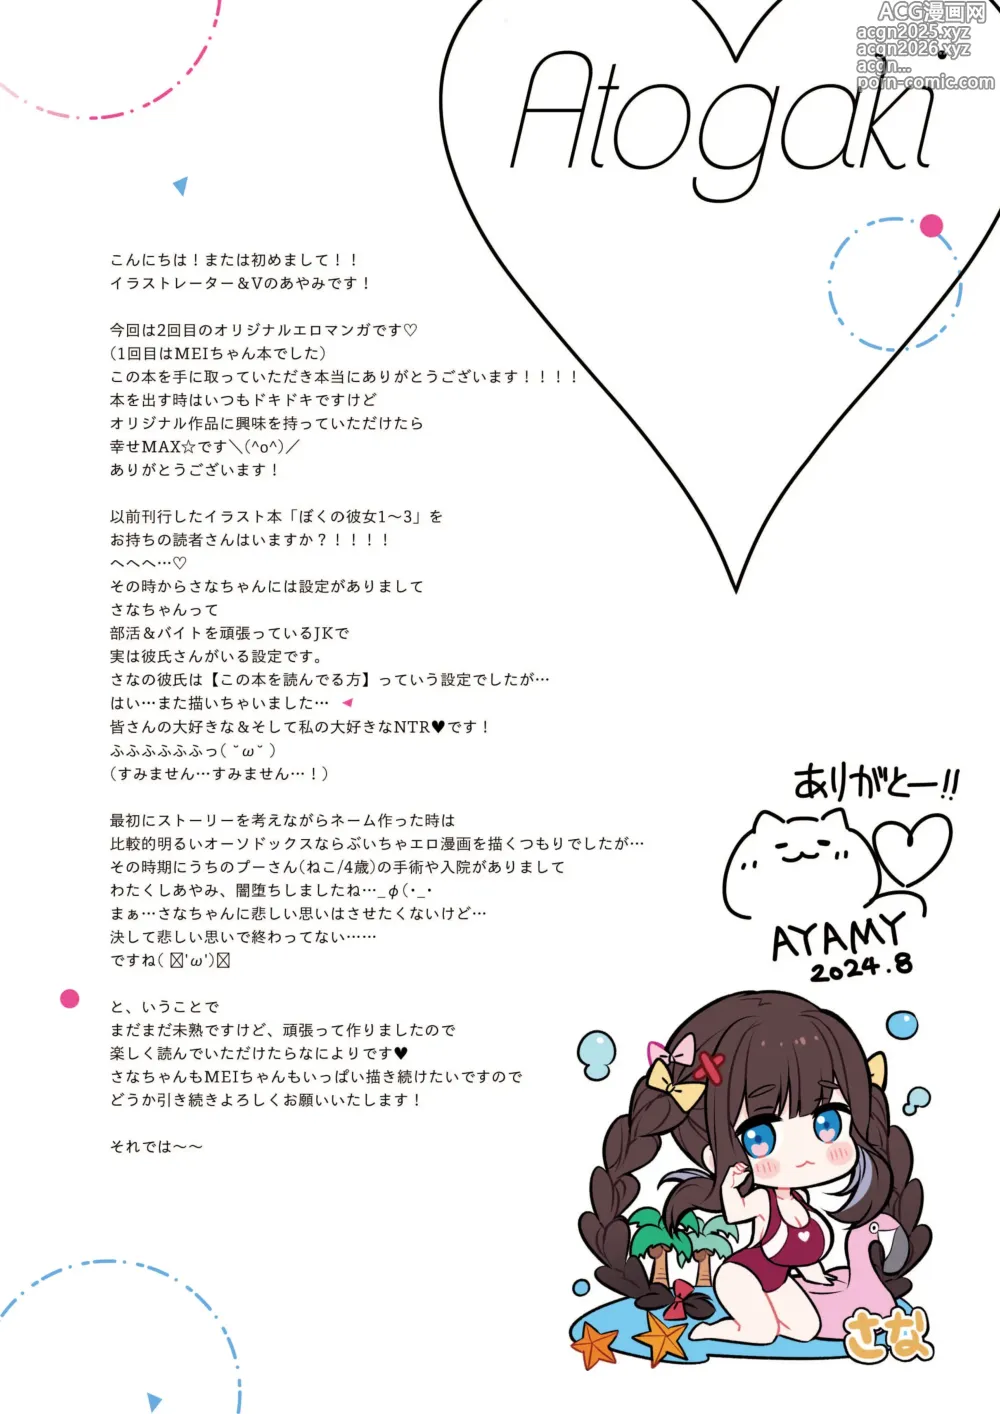 ACG漫画网
acgn2025.xyz
acgn2026.xyz
acgn...
porn-comic.com
Atogaki
こんにちは!または初めまして!!
イラストレーター&Vのあやみです!
今回は2回目のオリジナルエロマンガです♡
(1回目はMEIちゃん本でした)
この本を手に取っていただき本当にありがとうございます!!!!
本を出す時はいつもドキドキですけど
オリジナル作品に興味を持っていただけたら
幸せMAX☆です＼(^o^)／
ありがとうございます!
以前刊行したイラスト本「ぼくの彼女1〜3」を
お持ちの読者さんはいますか?!!!!
へへへ…♡
その時からさなちゃんには設定がありまして
さなちゃんって
部活&バイトを頑張っているJKで
実は彼氏さんがいる設定です。
さなの彼氏は【この本を読んでる方】っていう設定でしたが…
はい…また描いちゃいました…
皆さんの大好きな&そして私の大好きなNTR♥です!
ふふふふふふっ( ˘ω˘ )
(すみません…すみません…!)
最初にストーリーを考えながらネーム作った時は
比較的明るいオーソドックスならぶいちゃエロ漫画を描くつもりでしたが…
その時期にうちのプーさん(ねこ/4歳)の手術や入院がありまして
わたくしあやみ、闇堕ちしましたね…_φ(・_・
まぁ…さなちゃんに悲しい思いはさせたくないけど…
決して悲しい思いで終わってない……
ですね( ☒'ω')☒
と、いうことで
まだまだ未熟ですけど、頑張って作りましたので
楽しく読んでいただけたらなによりです♥
さなちゃんもMEIちゃんもいっぱい描き続けたいですので
どうか引き続きよろしくお願いいたします!
それでは〜〜
ありがとー!!
AYAMY
2024.8
さな